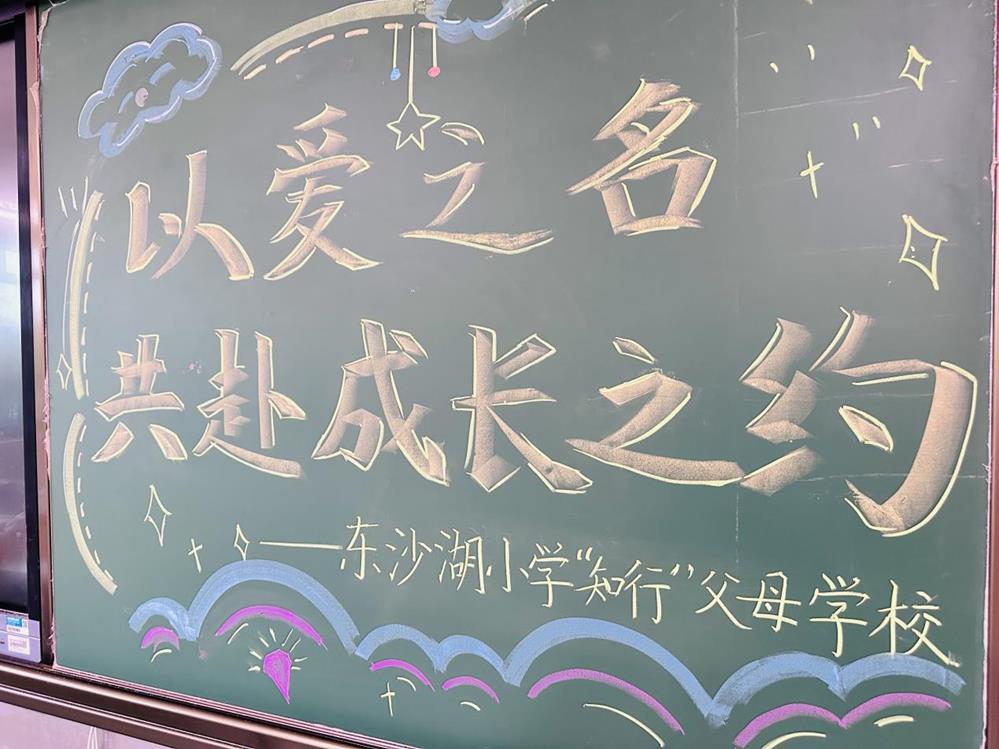 以爱之名
共赴成长之约
——东沙湖小学“知行”父母学校